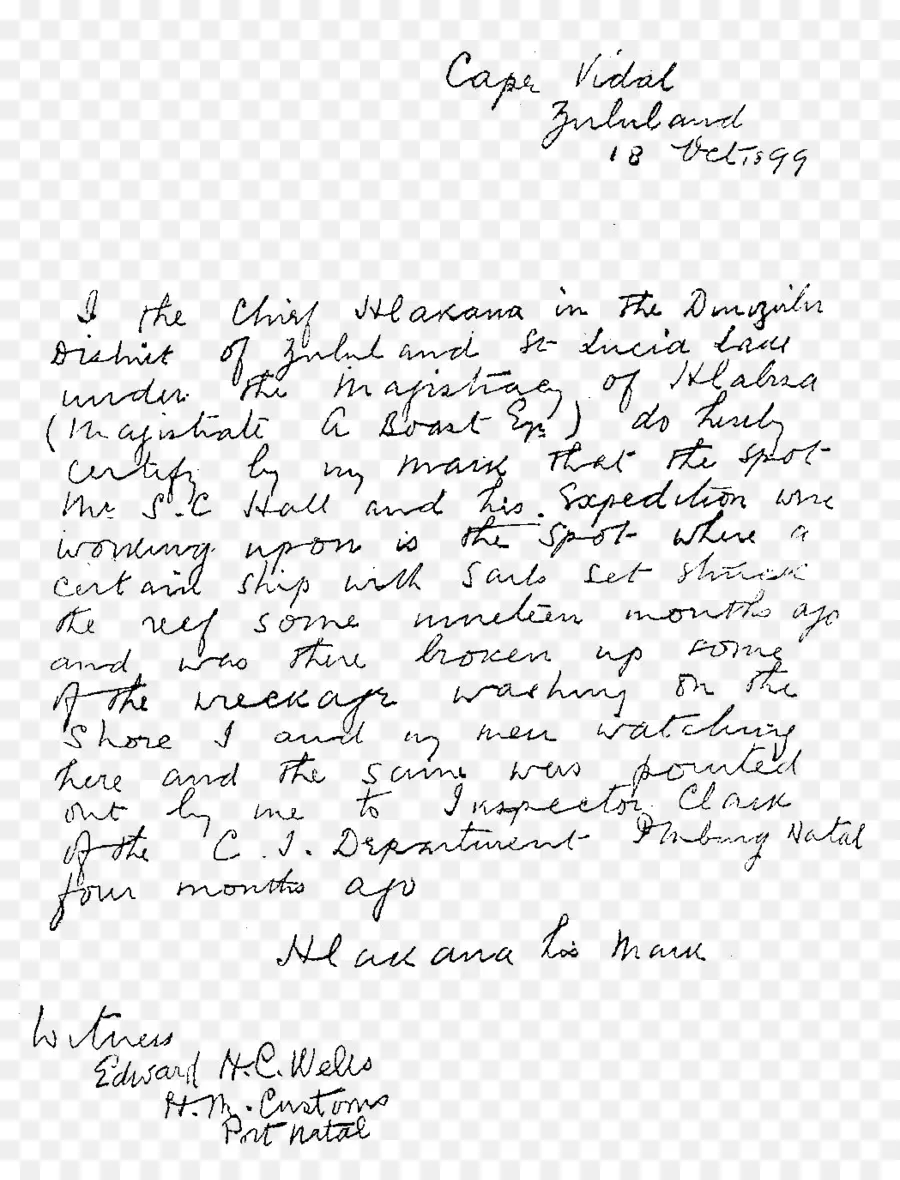 Cape Vidal
Zululand
18 Oct, 1899
I the Chief Hlakana in the
District of Zululand St Lucia Lake
under the Magistracy of Hlabisa
(Magistrate A Boast Esq.) do hereby
certify by my mark that the spot
Mr S.C Hall and his Expedition were
working upon is the spot where a
certain ship with sails set struck
the reef some nineteen months ago
and was there broken up some
of the wreckage washing on the
Shore I and my men watching
here and the same was pointed
out by me to Inspector Clark
of the C.I. Department PMburg Natal
four months ago
Hlakana his Mark
Witness
Edward H.C. Wells
H.M. Customs
Port Natal